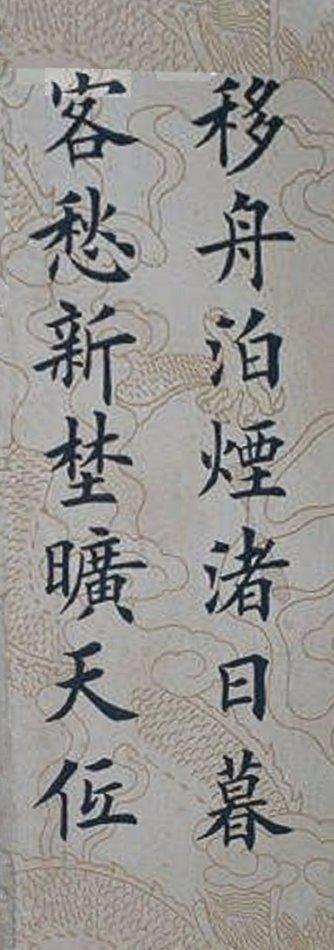 移舟泊煙渚日暮
客愁新埜曠天仾